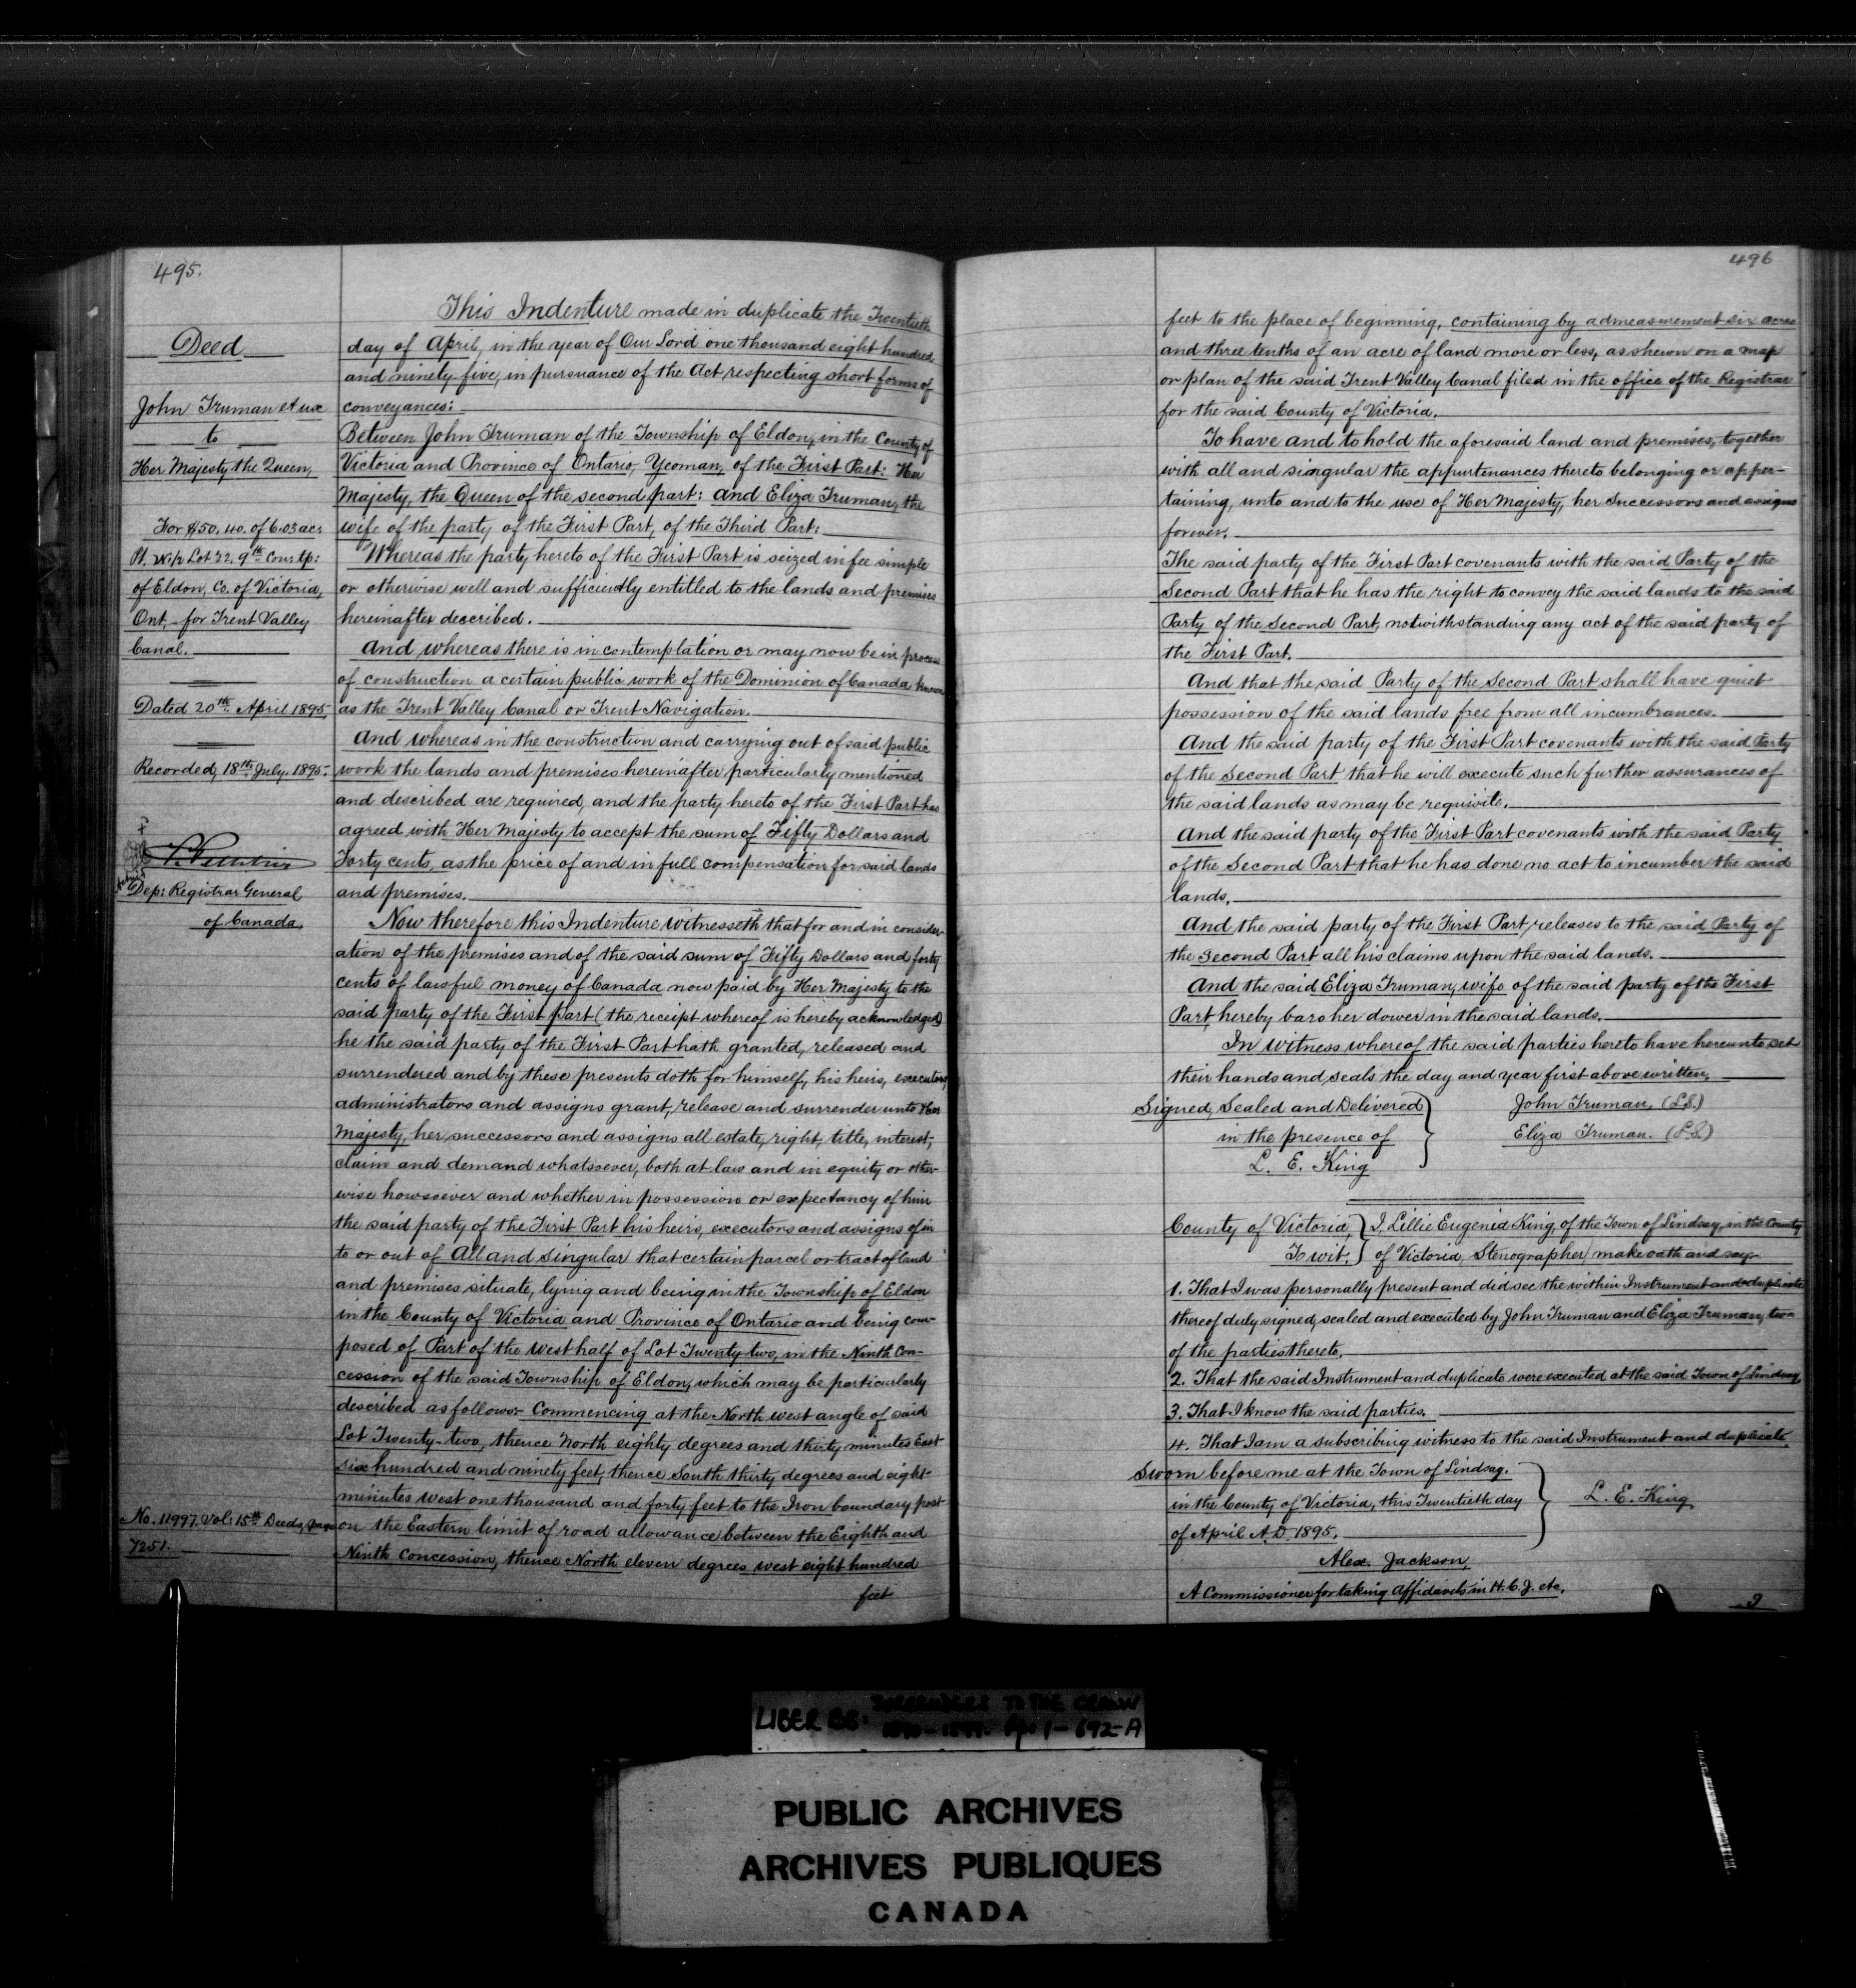 495.
Deed
John Truman et ux
to
Her Majesty the Queen,
For $50.40. of 6.03 acs
Pt. W ½ Lot 22. 9th Con: tp:
of Eldon, Co. of Victoria,
Ont, - for Trent Valley
Canal.
Dated 20th April 1895,
Recorded, 18th July. 1895.
Dep: Registrar General
of Canada.
No. 11997. Vol: 15th Deeds, page
7251.
This Indenture made in duplicate the Twentieth
day of April, in the year of Our Lord one thousand eight hundred
and ninety-five, in pursuance of the Act respecting short forms of
conveyances:
Between John Truman of the Township of Eldon, in the County of
Victoria and Province of Ontario, Yeoman, of the First Part: Her
Majesty, the Queen of the second part: and Eliza Truman, the
wife of the party of the First Part, of the Third Part:
Whereas the party hereto of the First Part is seized in fee simple
or otherwise well and sufficiently entitled to the lands and premises
hereinafter described.
And whereas there is in contemplation or may now be in process
of construction a certain public work of the Dominion of Canada known
as the Trent Valley Canal or Trent Navigation.
And whereas in the construction and carrying out of said public
work the lands and premises hereinafter particularly mentioned
and described are required, and the party hereto of the First Part has
agreed with Her Majesty to accept the sum of Fifty Dollars and
Forty cents, as the price of and in full compensation for said lands
and premises.
Now therefore this Indenture witnesseth that for and in consider-
ation of the premises and of the said sum of Fifty Dollars and forty
cents of lawful money of Canada now paid by Her Majesty to the
said party of the First part (the receipt whereof is hereby acknowledged)
he the said party of the First Part hath granted, released and
surrendered and by these presents doth for himself, his heirs, executors,
administrators and assigns grant, release and surrender unto Her
Majesty, her successors and assigns all estate, right, title, interest,
claim and demand whatsoever, both at law and in equity or other-
wise howsoever and whether in possession or expectancy of him
the said party of the First Part his heirs, executors and assigns of in
to or out of All and Singular that certain parcel or tract of land
and premises situate, lying and being in the Township of Eldon
in the County of Victoria and Province of Ontario and being com-
posed of Part of the west half of Lot Twenty-two, in the Ninth Con-
cession of the said Township of Eldon, which may be particularly
described as follows:- Commencing at the North west angle of said
Lot Twenty-two, thence North eighty degrees and thirty minutes East
six hundred and ninety feet, thence South thirty degrees and eight-
minutes west one thousand and forty feet to the Iron boundary post
on the Eastern limit of road allowance between the Eighth and
Ninth Concession, thence North eleven degrees west eight hundred
feet
496
feet to the place of beginning, containing by admeasurement six acres
and three tenths of an acre of land more or less, as shewn on a map
or plan of the said Trent Valley Canal filed in the office of the Registrar
for the said County of Victoria.
To have and to hold the aforesaid land and premises, together
with all and singular the appurtenances thereto belonging or apper-
taining, unto and to the use of Her Majesty, her Successors and assigns
forever.
The said party of the First Part covenants with the said Party of the
Second Part that he has the right to convey the said lands to the said
Party of the Second Part, notwithstanding any act of the said party of
the First Part.
And that the said Party of the Second Part shall have quiet
possession of the said lands free from all incumbrances.
And the said party of the First Part covenants with the said Party
of the Second Part that he will execute such further assurances of
the said lands as may be requisite.
And the said party of the First Part covenants with the said Party
of the Second Part that he has done no act to incumber the said
lands.
And the said party of the First Part, releases to the said Party of
the Second Part all his claims upon the said lands.
And the said Eliza Truman, wife of the said party of the First
Part, hereby bars her dower in the said lands.
In witness whereof the said parties hereto have hereunto set
their hands and seals the day and year first above written,
Signed, Sealed and Delivered
in the presence of
L. E. King
John Truman. (L.S.)
Eliza Truman. (L.S.)
County of Victoria, I, Lillie Eugenia King, of the Town of Lindsay, in the County
To wit. of Victoria, Stenographer, make oath and say
1. That I was personally present and did see the within Instrument and duplicate
thereof duly signed, sealed and executed by John Truman and Eliza Truman, two
of the parties thereto.
2. That the said Instrument and duplicate were executed at the said Town of Lindsay,
3. That I know the said parties.
4. That I am a subscribing witness to the said Instrument and duplicate.
Sworn before me at the Town of Lindsay.
in the County of Victoria, this Twentieth day
of April A.D. 1895.
L. E. King
Alex. Jackson,
A Commissioner for taking Affidavits in H.C.J. etc.
LIBER BB: SURRENDERS TO THE CROWN
1890-1899. Pps 1-692-A
PUBLIC ARCHIVES
ARCHIVES PUBLIQUES
CANADA